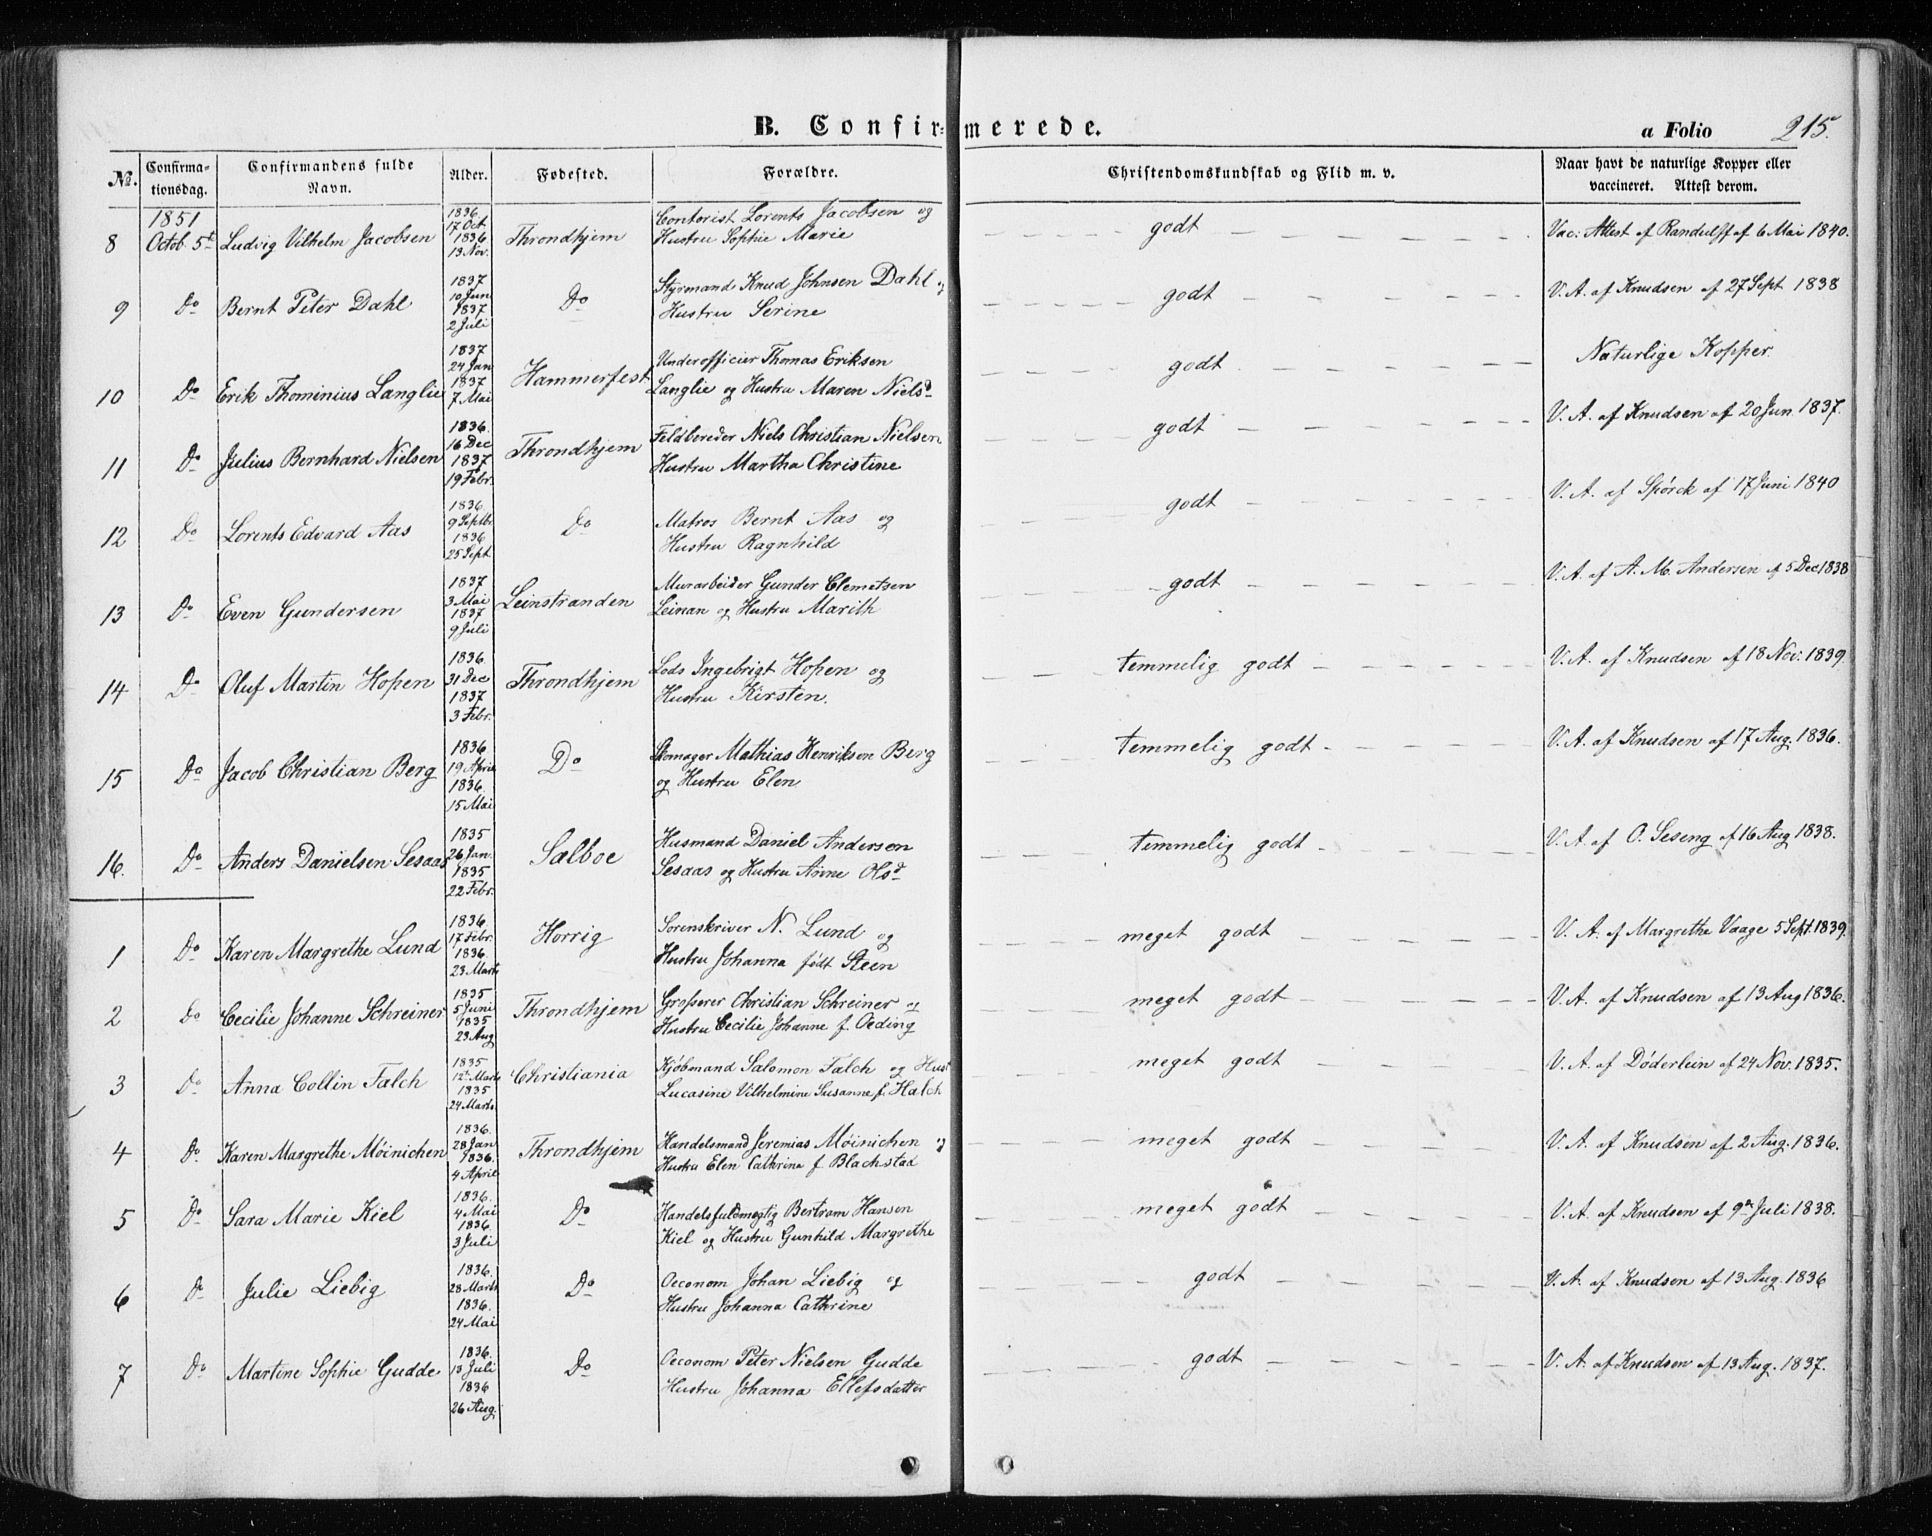 B. Confirmerede.
a Folio 215.
No. Confirmationsdag. Confirmandens fulde Navn. Alder. Fødested. Forældre. Christendomskundskab og Flid m. v. Naar havt de naturlige Kopper eller vaccineret. Attest derom.
8 1851 Octob. 5t Ludvig Vilhelm Jacobsen 1836 17 Oct. 1836 13 Nov. Throndhjem Contorist Lorents Jacobsen og Hustru Sophie Marie godt Vac: Attest af Randulff af 6 Mai 1840.
9 Do Bernt Peter Dahl 1837 10 Jun 1837 2 Juli Do Styrmand Knud Johnsen Dahl og Hustru Serine godt V. A. af Knudsen af 27 Sept 1838
10 Do Erik Thominius Langlie 1837 24 Jan 1837 7 Mai Hammerfest Underofficier Thomas Eriksen Langlie og Hustru Maren Nielsd godt Naturlige Kopper
11 Do Julius Bernhard Nielsen 1836. 16 Dec 1837 19 Febr. Throndhjem Feldbereder Niels Christian Nielsen Hustru Martha Christine godt V. A. af Knudsen af 20 Jun 1837.
12 Do Lorents Edvard Aas 1836 9 Septbr 1836 25 Sept Do Matros Bernt Aas og Hustru Ragnhild godt V. A. af Spörck af 17 Juni 1840
13 Do Even Gundersen 1837 3 Mai 1837 9 Juli Leinstranden Murarbeider Gunder Clemetsen Leinan og Hustru Marith godt V. A. af A. M. Andersen af 5 Dec 1838
14 Do Oluf Martin Hopen 1836 31 Dec 1837 3 Febr. Throndhjem Lods Ingebrigt Hopen og Hustru Kirsten. temmelig godt V. A. af Knudsen af 18 Nov. 1839
15 Do Jacob Christian Berg 1836 19 April 1836 15 Mai Do Skomager Mathias Henriksen Berg og Hustru Elen temmelig godt V. A. af Knudsen af 17 Aug. 1836.
16. Do Anders Danielsen Sesaas 1835 26 Jan. 1835 22 Febr. Sælboe Husmand Daniel Andersen Sesaas og Hustru Anne Olsd temmelig godt V. A. af O. Seseng af 16 Aug 1838.
1 Do Karen Margrethe Lund 1836 17 Febr. 1836. 23 Marts Horrig Sorenskriver N. Lund og Hustru Johanna født Steen meget godt V. A. af Margrethe Vaage 5 Sept. 1839.
2 Do Cecilie Johanne Schreiner 1835 5 Juni 1835 23 Aug Throndhjem Grosserer Christian Schreiner og Hustru Cecilie Johanne f. Oeding meget godt V. A. af Knudsen af 13 Aug 1836.
3 Do Anna Collin Falch 1835 12t Marts 1835 24 Marts. Christiania Kjøbmand Salomon Falch og Hust Lucasine Vilhelmine Susanne f. Halch meget godt V. A. af Døderlein af 24 Nov. 1835.
4 Do Karen Margrethe Möinichen 1836. 28 Jan 1836. 4 April Throndhjem Handelsmand Jeremias Möinichen og Hustru Elen Cathrine f Blachstad meget godt V. A. af Knudsen af 2 Aug. 1836.
5 Do Sara Marie Kiel 1836. 4 Mai 1836. 3 Juli Do Handelsfuldmegtig Bertram Hansen Kiel og Hustru Gunhild Margrethe meget godt V. A. af Knudsen af 9de Juli 1838.
6 Do Julie Liebig 1836. 28 Marts 1836. 24 Mai Do Oeconom Johan Liebig og Hustru Johanna Cathrine godt V. A. af Knudsen af 13 Aug. 1836
7 Do Martine Sophie Gudde 1836. 13 Juli 1836 26 Aug. Do Oeconom Peter Nielsen Gudde Hustru Johanna Ellefsdatter godt V. A. af Knudsen af 13 Aug. 1837.